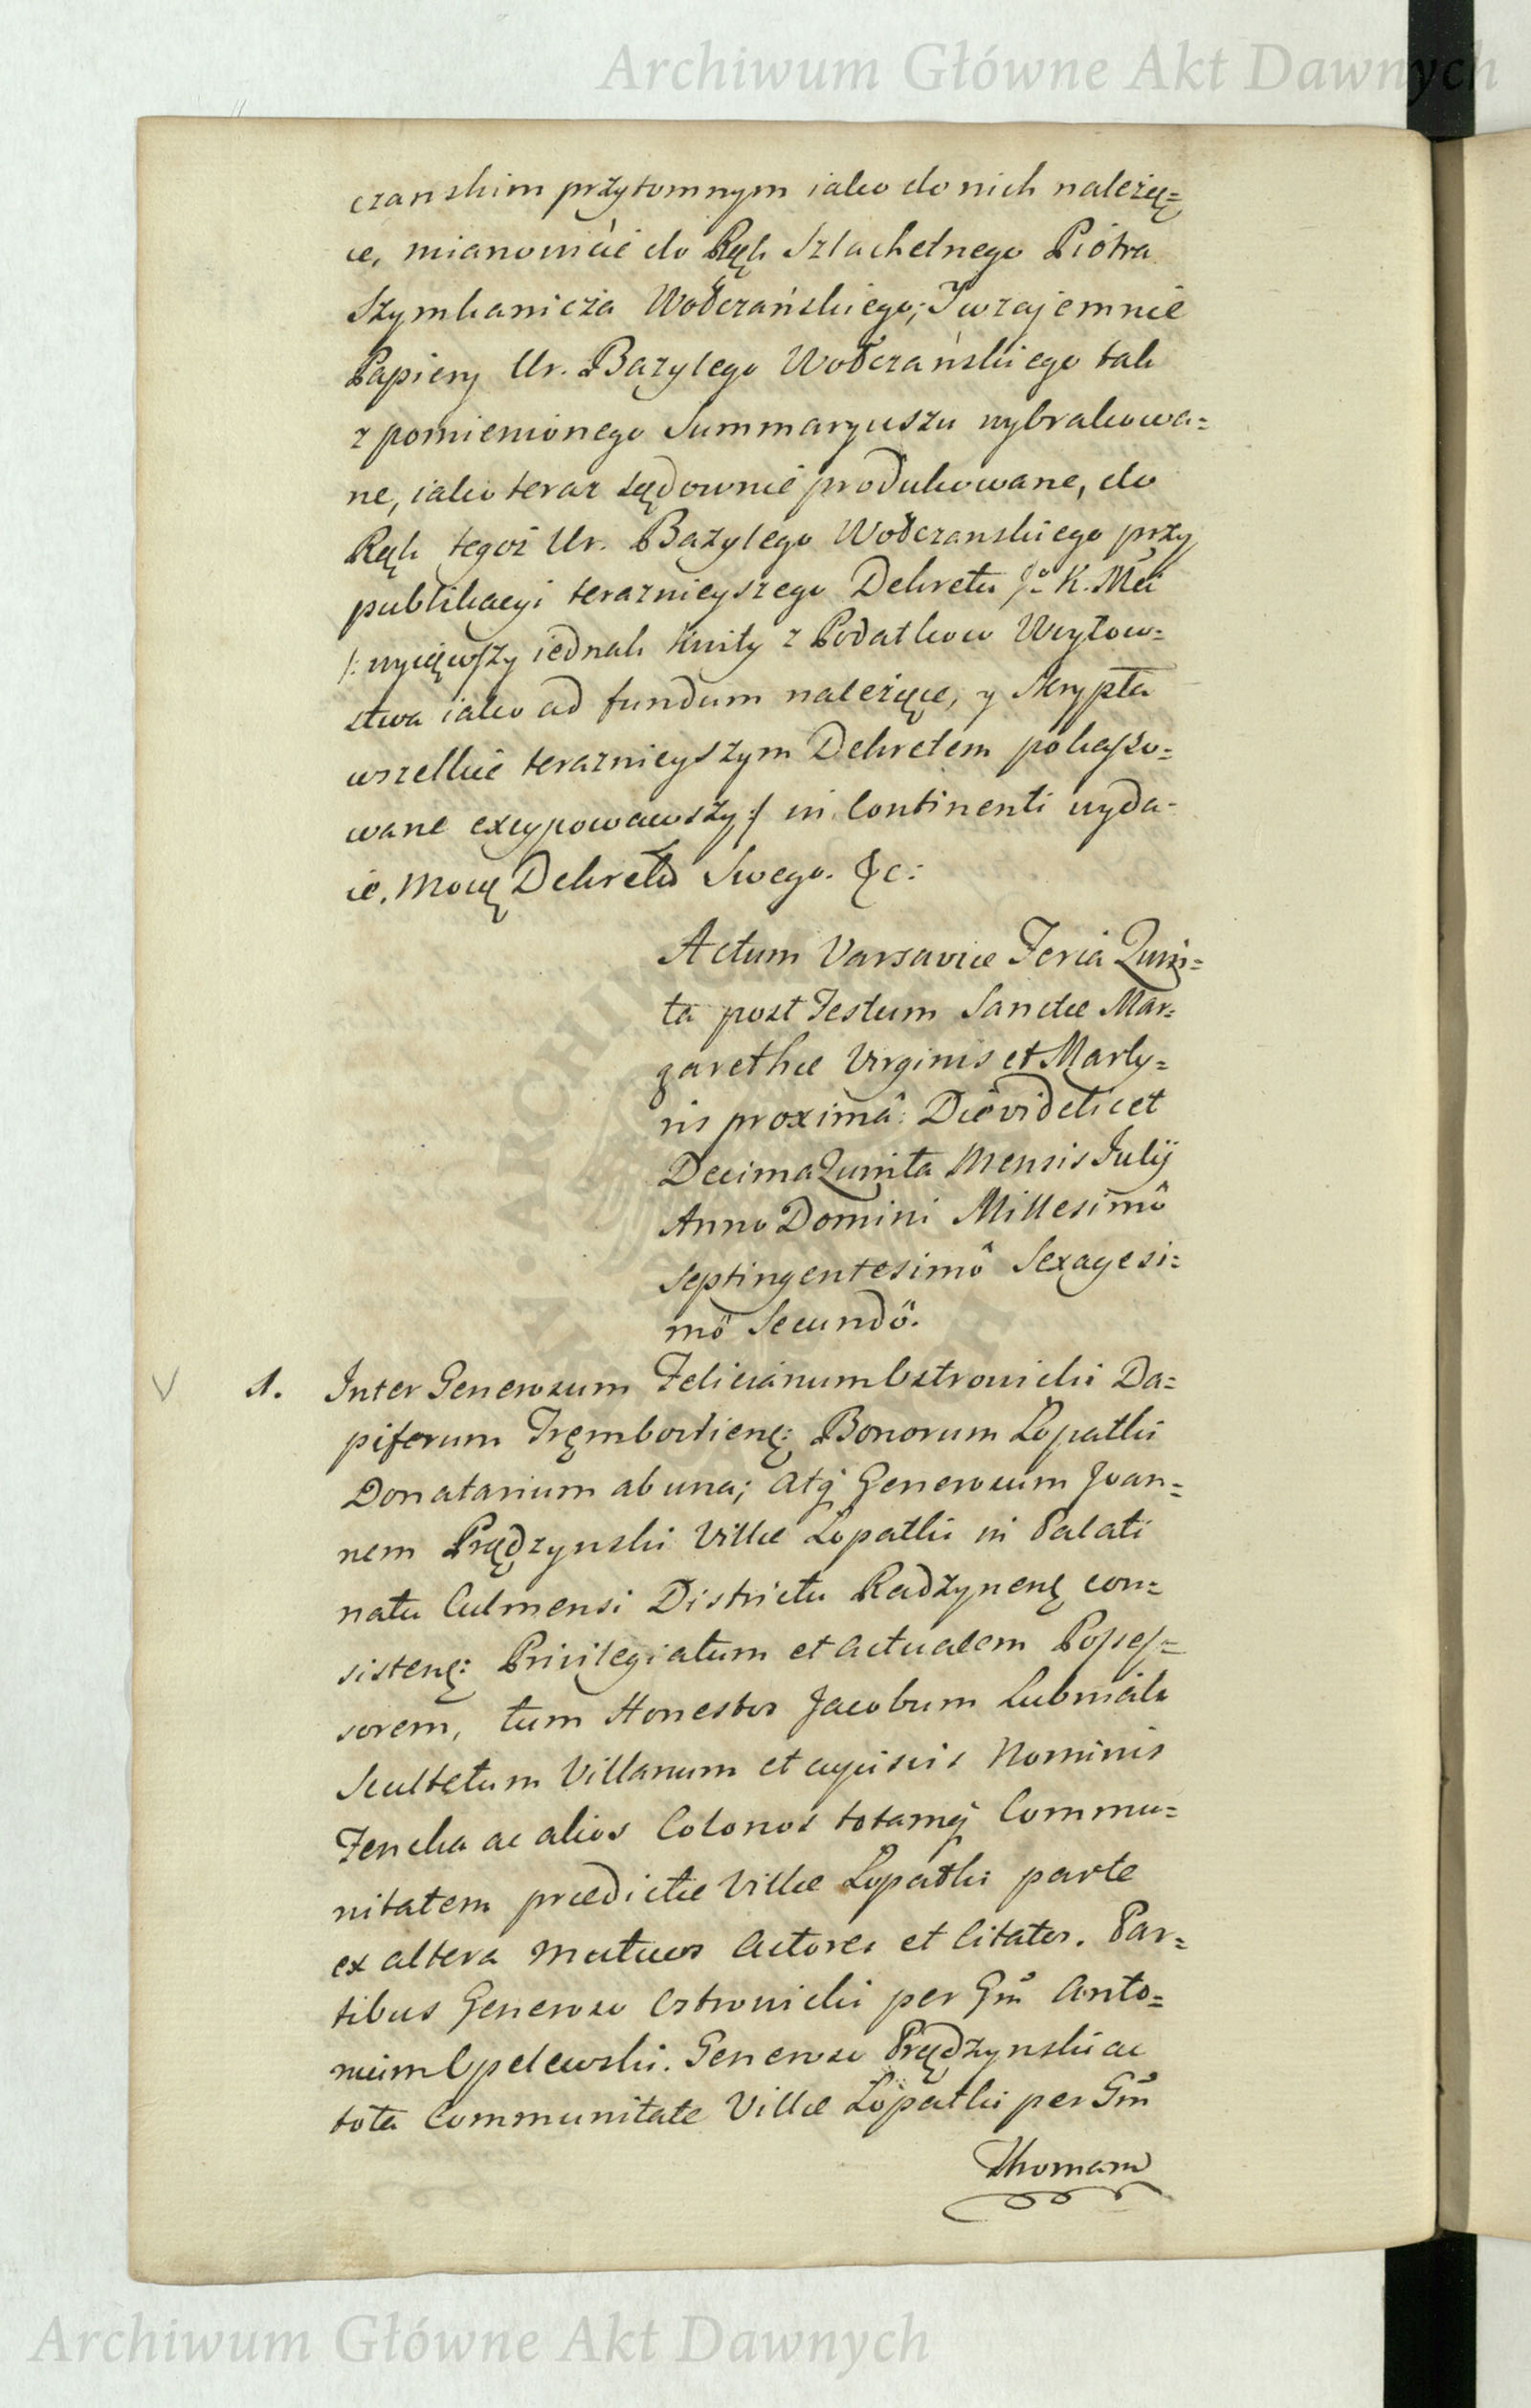 Archiwum Główne Akt Dawnych
czanskim przytomnym iako do nich należą=
ce, mianowicie do Rąk Szlachetnego Piotra
Szymkanicza Wołczańskiego; I wzajemnie
Papiery Ur. Bazylego Wołczańskiego tak
z pomienionego Summaryuszu wybrakowa=
ne, iako teraz sądownie produkowane, do
Rąk tegoż Ur. Bazylego Wołczanskiego przy
publikacyi teraznieyszego Dekretu Jº K. Mci
/: wyiąwszy iednak Kwity z Podatkow Wuytow=
stwa iako ad fundum należące, y Skrypta
wszelkie teraznieyszym Dekretem pokasso=
wane excypowawszy :/ in Continenti wyda-
ie, Mocą Dekretu Swego. &c:
Actum Varsaviæ Feria Quin=
ta post Festum Sanctæ Mar=
garethæ Virginis et Marty=
ris proximâ: Die videlicet
Decima Quinta Mensis Julij
Anno Domini Millesimô
Septingentesimô Sexagesi=
mô Secundô.
1. Inter Generosum Felicianum Ostrowicki Da=
piferum Trembovliens: Bonorum Łopatki
Donatarium ab una; atq Generosum Joan=
nem Prądzynski Villæ Łopatki in Palati
natu Culmensi Districtu Radzynens con=
sistens: Privilegiatum et actualem Posses=
sorem, tum Honestos Jacobum Lubniak
Scultetum Villanum et cujusvis Nominis
Fencka ac alios Colonos totamq Commu=
nitatem prædictæ Villæ Łopatki parte
ex altera mutuos Actores et Citatos. Par=
tibus Generoso Ostrowicki per Gm Anto=
nium Opelewski. Generoso Prądzynski ac
tota Communitate Villæ Łopatki per Gm
Thomam
Archiwum Główne Akt Dawnych